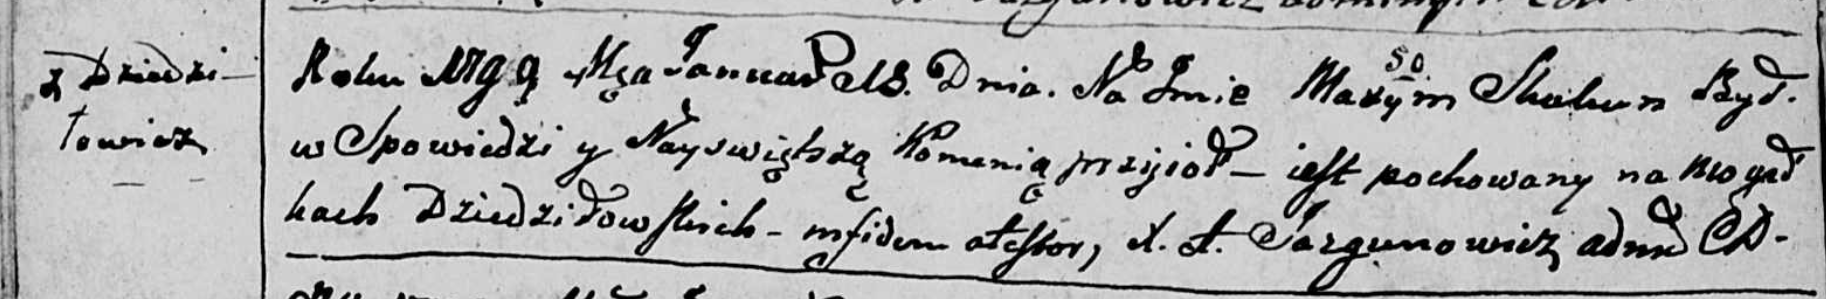 z Dziedzi-
łowicz
Roku 1799 Mca Januar 18. Dnia. Na Imie Maxym Skakun
50
w Spowiedzi y Nayswiętszą Komunią przyioł – iest pochowany na mogił
kach Dziedziłowskich – infidem atestor, X. A. Jazgunowicz